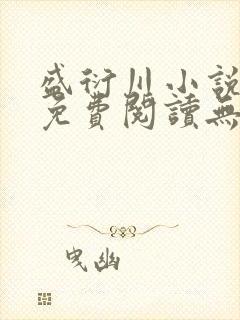 盛衍川小說
免費閱讀無
曳幽